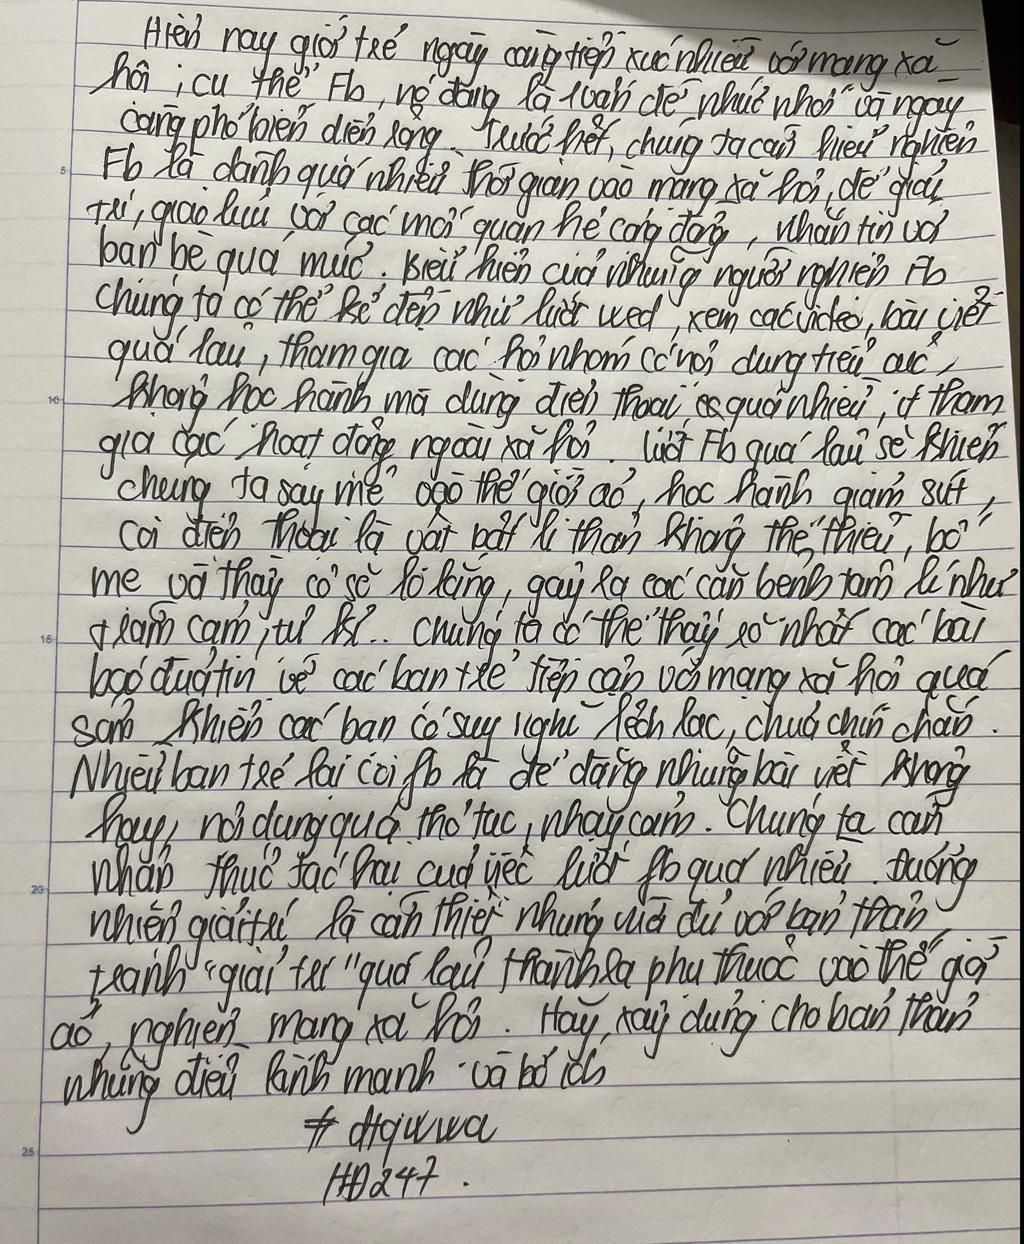 Hiện nay giới trẻ ngày càng tiếp xúc nhiều với mạng xã
hội, cụ thể Fb, nó đang là vấn đề nhức nhối và ngày
càng phổ biến diện rộng. Trước hết, chúng ta cần hiểu nghiện
Fb là dành quá nhiều thời gian vào mạng xã hội, để giải
trí, giao lưu với các mối quan hệ cộng đồng, nhắn tin với
bạn bè quá mức. Biểu hiện của những người nghiện Fb
chúng ta có thể kể đến như lướt wed, xem các video, bài viết
quá lâu, tham gia các hội nhóm có nội dung tiêu cực,
không học hành mà dùng điện thoại quá nhiều, ít tham
gia các hoạt động ngoài xã hội. Lướt Fb quá lâu sẽ khiến
chúng ta say mê vào thế giới ảo, học hành giảm sút,
coi điện thoại là vật bất li thân không thể thiếu, bố
mẹ và thầy cô sẽ lo lắng, gây ra các căn bệnh tâm lí như
trầm cảm, tự kỉ.. Chúng ta có thể thấy rõ nhất các bài
báo đưa tin về các bạn trẻ tiếp cận với mạng xã hội quá
sớm khiến các bạn có suy nghĩ lệch lạc, chưa chín chắn.
Nhiều bạn trẻ lại coi fb là để đăng những bài viết không
hay, nội dung quá thô tục, nhạy cảm. Chúng ta cần
nhận thức tác hại của việc lướt fb quá nhiều. Đương
nhiên giải trí là cần thiết nhưng vừa đủ với bản thân
tránh "giải trí" quá lâu thành ra phụ thuộc vào thế giới
ảo, nghiện mạng xã hội. Hãy xây dựng cho bản thân
những điều lành mạnh và bổ ích
HĐ247.